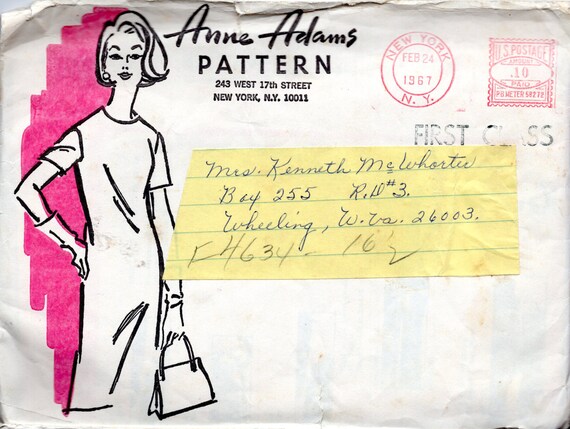 Anne Adams
PATTERN
243 WEST 17th STREET
NEW YORK, N.Y. 10011
NEW YORK
FEB 24
1967
N.Y.
U.S. POSTAGE
AMOUNT
.10
PAID
PB METER 582772
FIRST CLASS
Mrs. Kenneth McWhorter
Box 255 R.D#3.
Wheeling, W.Va. 26003.
F4634 - 16½